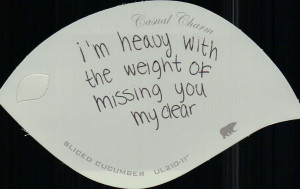 Casual Charm
i'm heavy with
the weight of
missing you
my dear
SLICED CUCUMBER UL210-11"